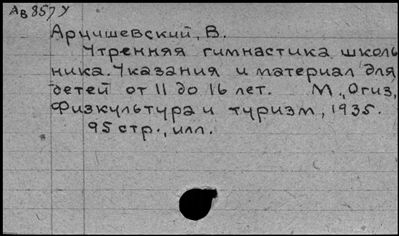 Ав 857 У
Арцишевский, В.
Утренняя гимнастика школь
ника. Указания и материал для
детей от 11 до 16 лет. М., Огиз,
Физкультура и туризм, 1935.
95 стр., илл.